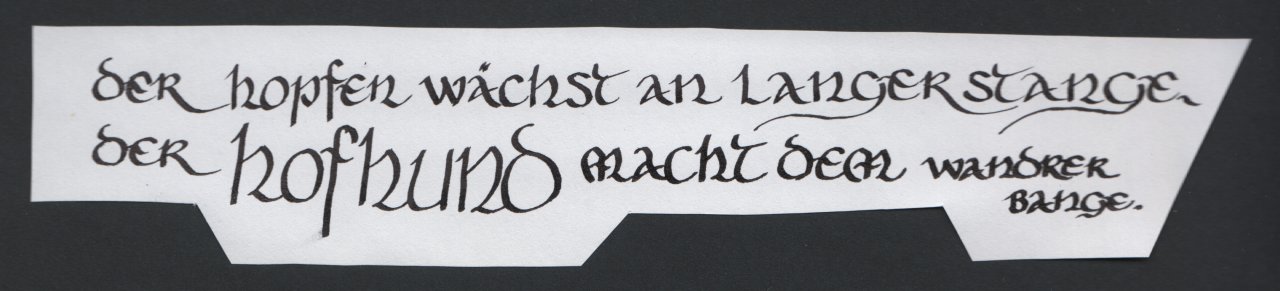 der hopfen wächst an langer stange.
der hofhund macht dem wandrer
bange.